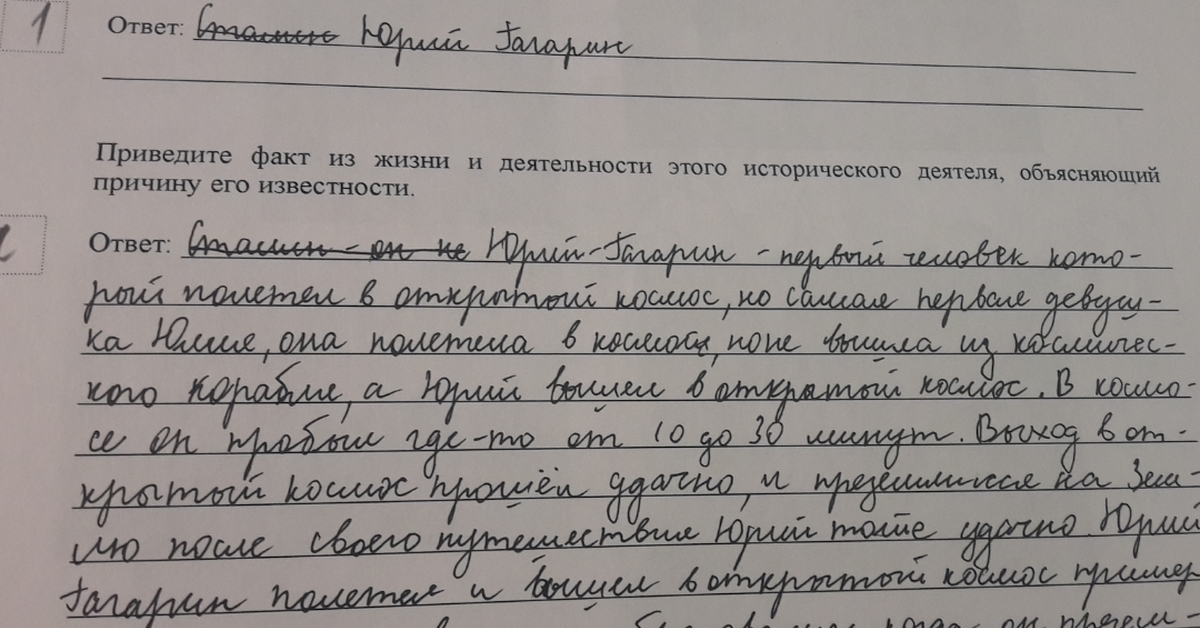 1
Ответ: Сталин Юрий Гагарин
Приведите факт из жизни и деятельности этого исторического деятеля, объясняющий
причину его известности.
Ответ: Сталин - он не Юрий-Гагарин - первый человек кото-
рый полетел в открытый космос, но самая первая девуш-
ка Юлия, она полетела в космос, но не вышла из космичес-
кого корабля, а Юрий вышел в открытый космос. В космо-
се он пробыл где-то от 10 до 30 минут. Выход в от-
крытый космос прошёл удачно, и приземлился на Зем-
лю после своего путешествия Юрий тоже удачно. Юрий
Гагарин полетел и вышел в открытый космос пример